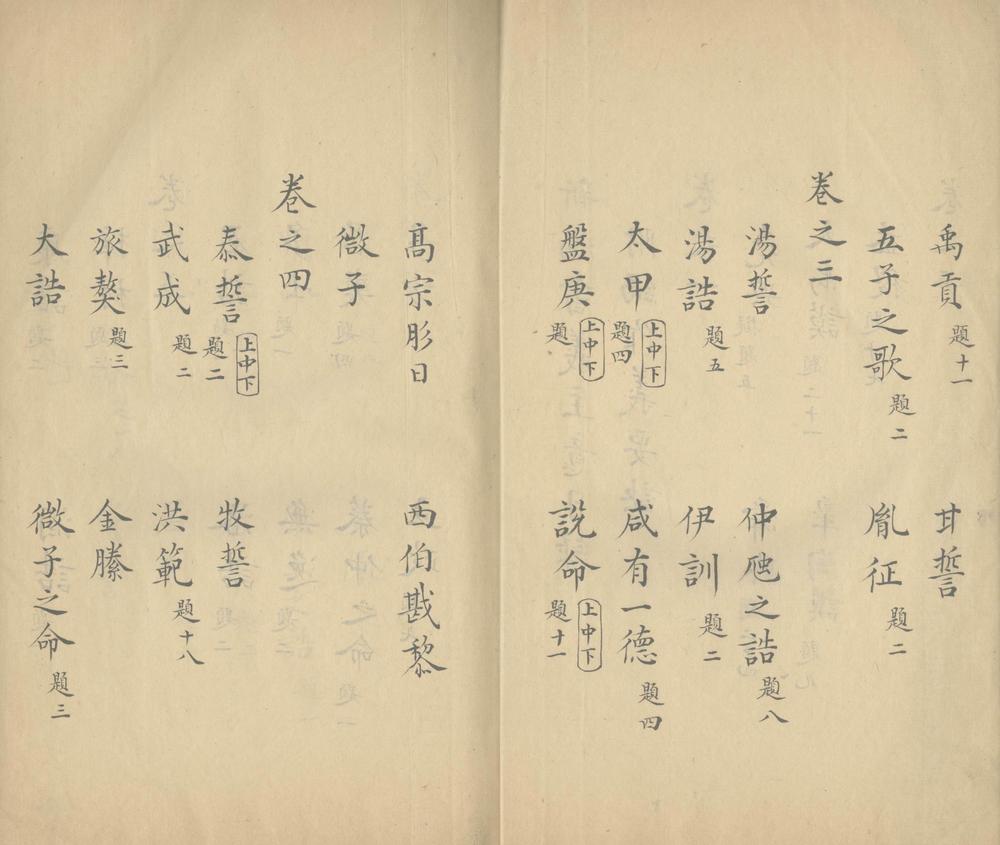 禹貢 題十一 甘誓
五子之歌 題二 胤征 題二
卷之三
湯誓 仲虺之誥 題八
湯誥 題五 伊訓 題二
太甲 上中下 題四 咸有一德 題四
盤庚 上中下 題 說命 上中下 題十一
髙宗肜日 西伯戡黎
微子
卷之四
泰誓 上中下 題二 牧誓
武成 題二 洪範 題十八
旅獒 題三 金縢
大誥 微子之命 題三